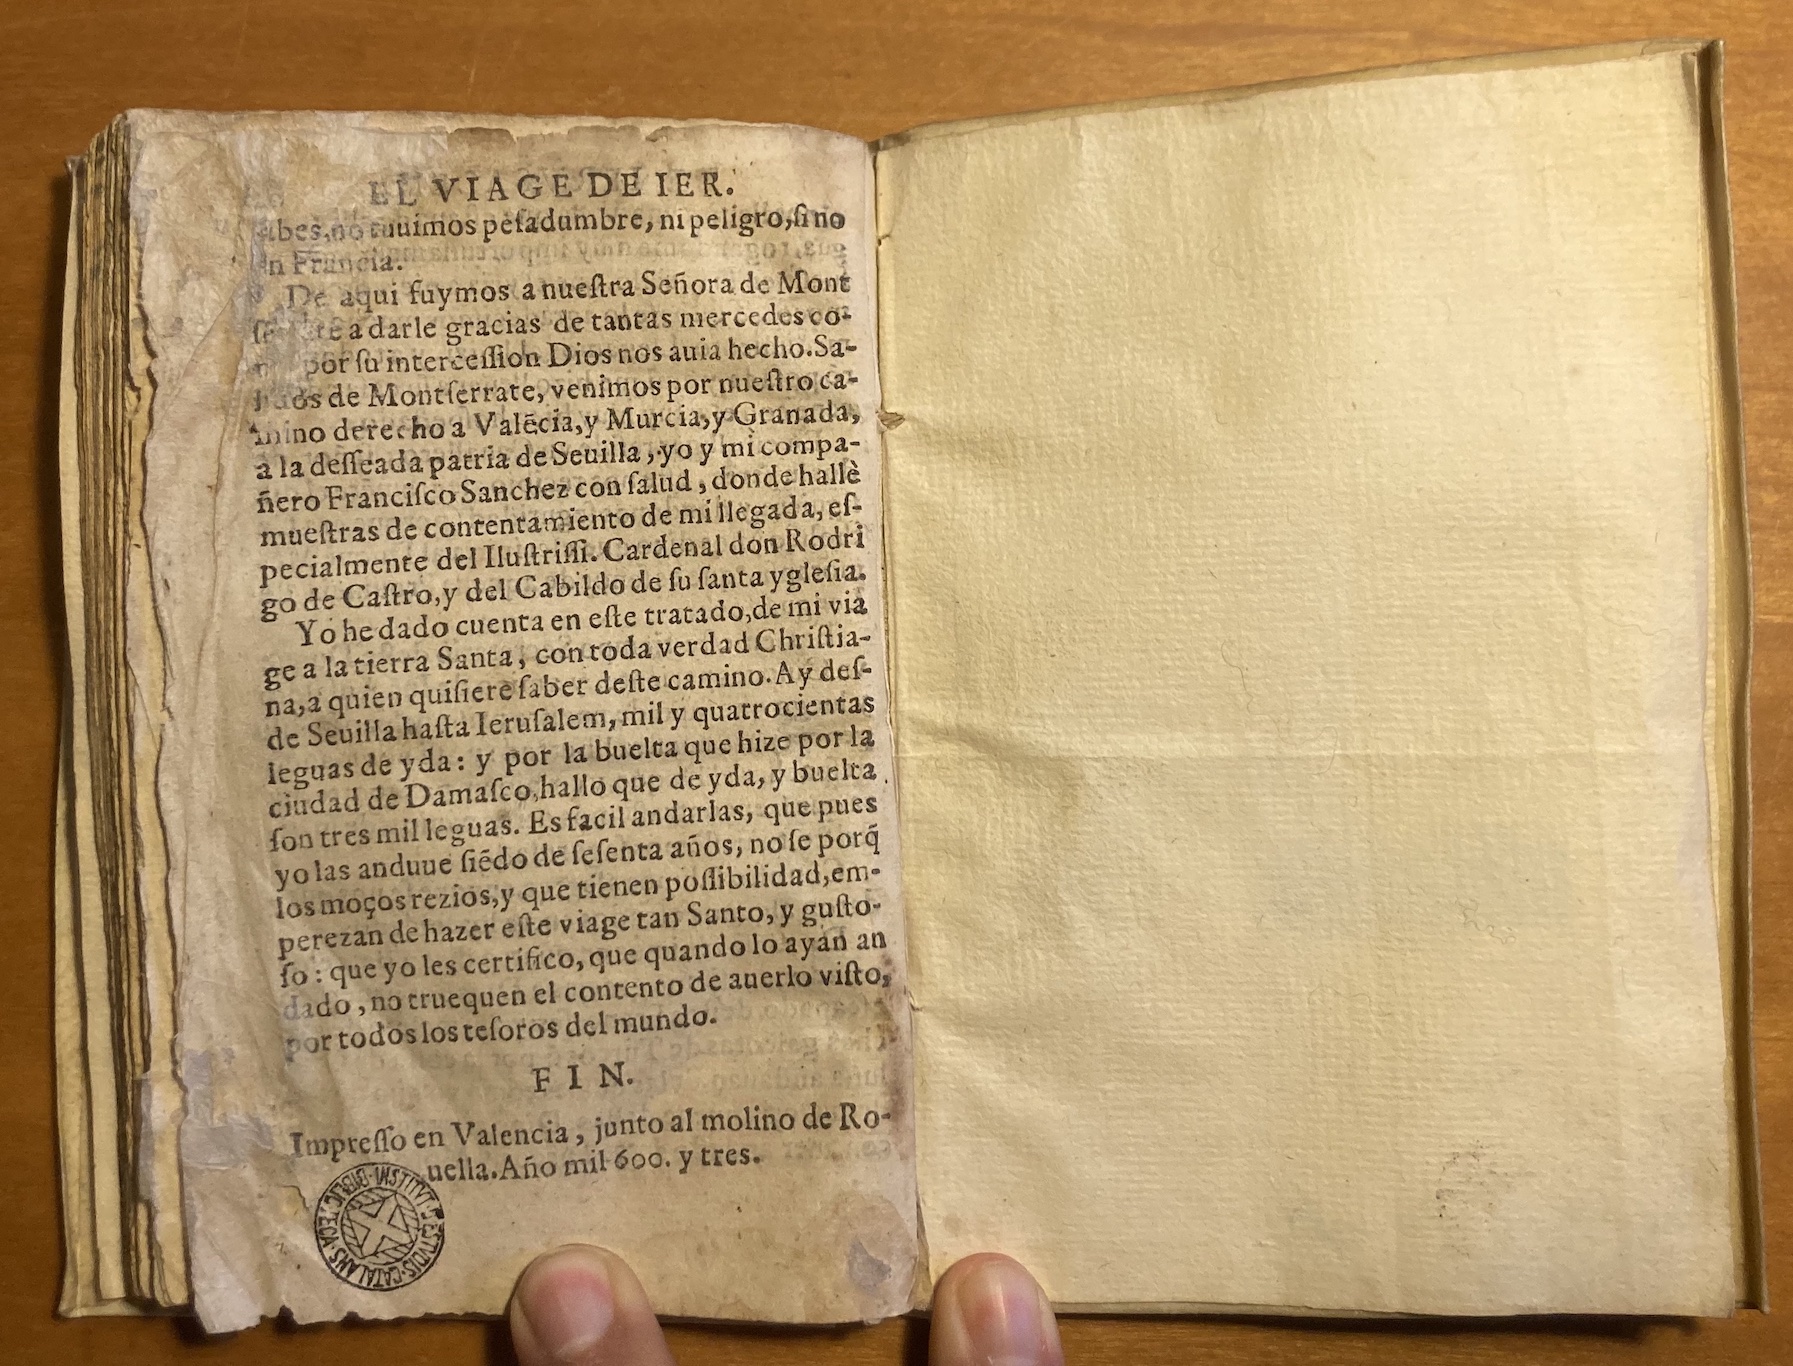 EL VIAGE DE IER.
abes, no tuuimos peſadumbre, ni peligro, ſi no
en Francia.
De aqui fuymos a nueſtra Señora de Mont
a darle gracias de tantas mercedes co-
por ſu interceſſion Dios nos auia hecho. Sa-
de Montſerrate, venimos por nueſtro ca-
mino derecho a Valẽcia, y Murcia, y Granada,
a la deſſeada patria de Seuilla, yo y mi compa-
ñero Franciſco Sanchez con ſalud, donde hallè
mueſtras de contentamiento de mi llegada, eſ-
pecialmente del Iluſtriſſi. Cardenal don Rodri
go de Caſtro, y del Cabildo de ſu ſanta ygleſia.
Yo he dado cuenta en eſte tratado, de mi via
ge a la tierra Santa, con toda verdad Chriſtia-
na, a quien quiſiere ſaber deſte camino. Ay deſ-
de Seuilla haſta Ieruſalem, mil y quatrocientas
leguas de yda: y por la buelta que hize por la
ciudad de Damaſco, hallo que de yda, y buelta
ſon tres mil leguas. Es facil andarlas, que pues
yo las anduue ſiẽdo de ſeſenta años, no ſe porq̃
los moços rezios, y que tienen poſſibilidad, em-
perezan de hazer eſte viage tan Santo, y guſto-
ſo: que yo les certifico, que quando lo ayan an
dado, no truequen el contento de auerlo viſto,
por todos los teſoros del mundo.
FIN.
Impreſſo en Valencia, junto al molino de Ro-
uella. Año mil 600. y tres.
INSTITVT·D'ESTVDIS·CATALANS·BIBLIOTECA